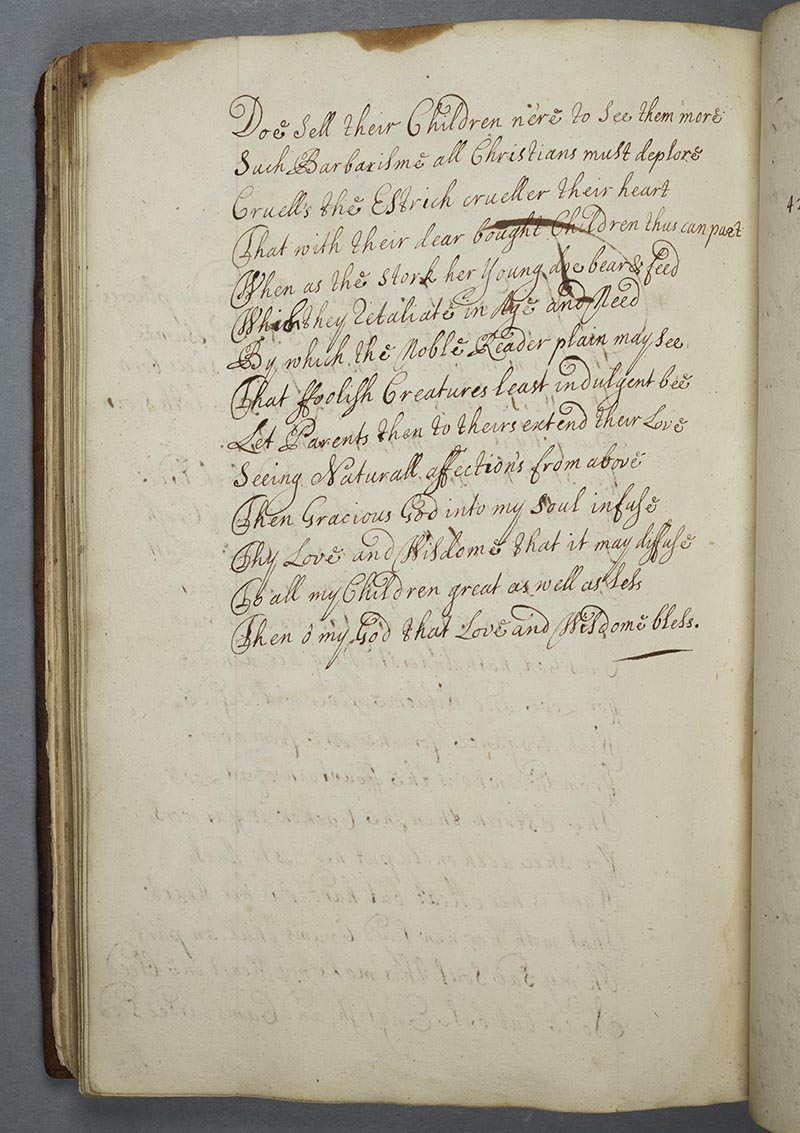 Doe Sell their Children n'ere to See them more
Such Barbarisme all Christians must deplore
Cruell's the Estrich crueller their heart
That with their dear bought Children thus can part
When as the Stork her Young doe bear & feed
Which they retaliate in Age and Need
By which the Noble Reader plain may See
That ffoolish Creatures least indulgent bee
Let Parents then to theirs extend their Love
Seeing Naturall affection's from above
Then Gracious God into my Soul infuse
Thy Love and Wisdome that it may diffuse
To all my Children great as well as less
Then ô my God that Love and Wisdome bless.